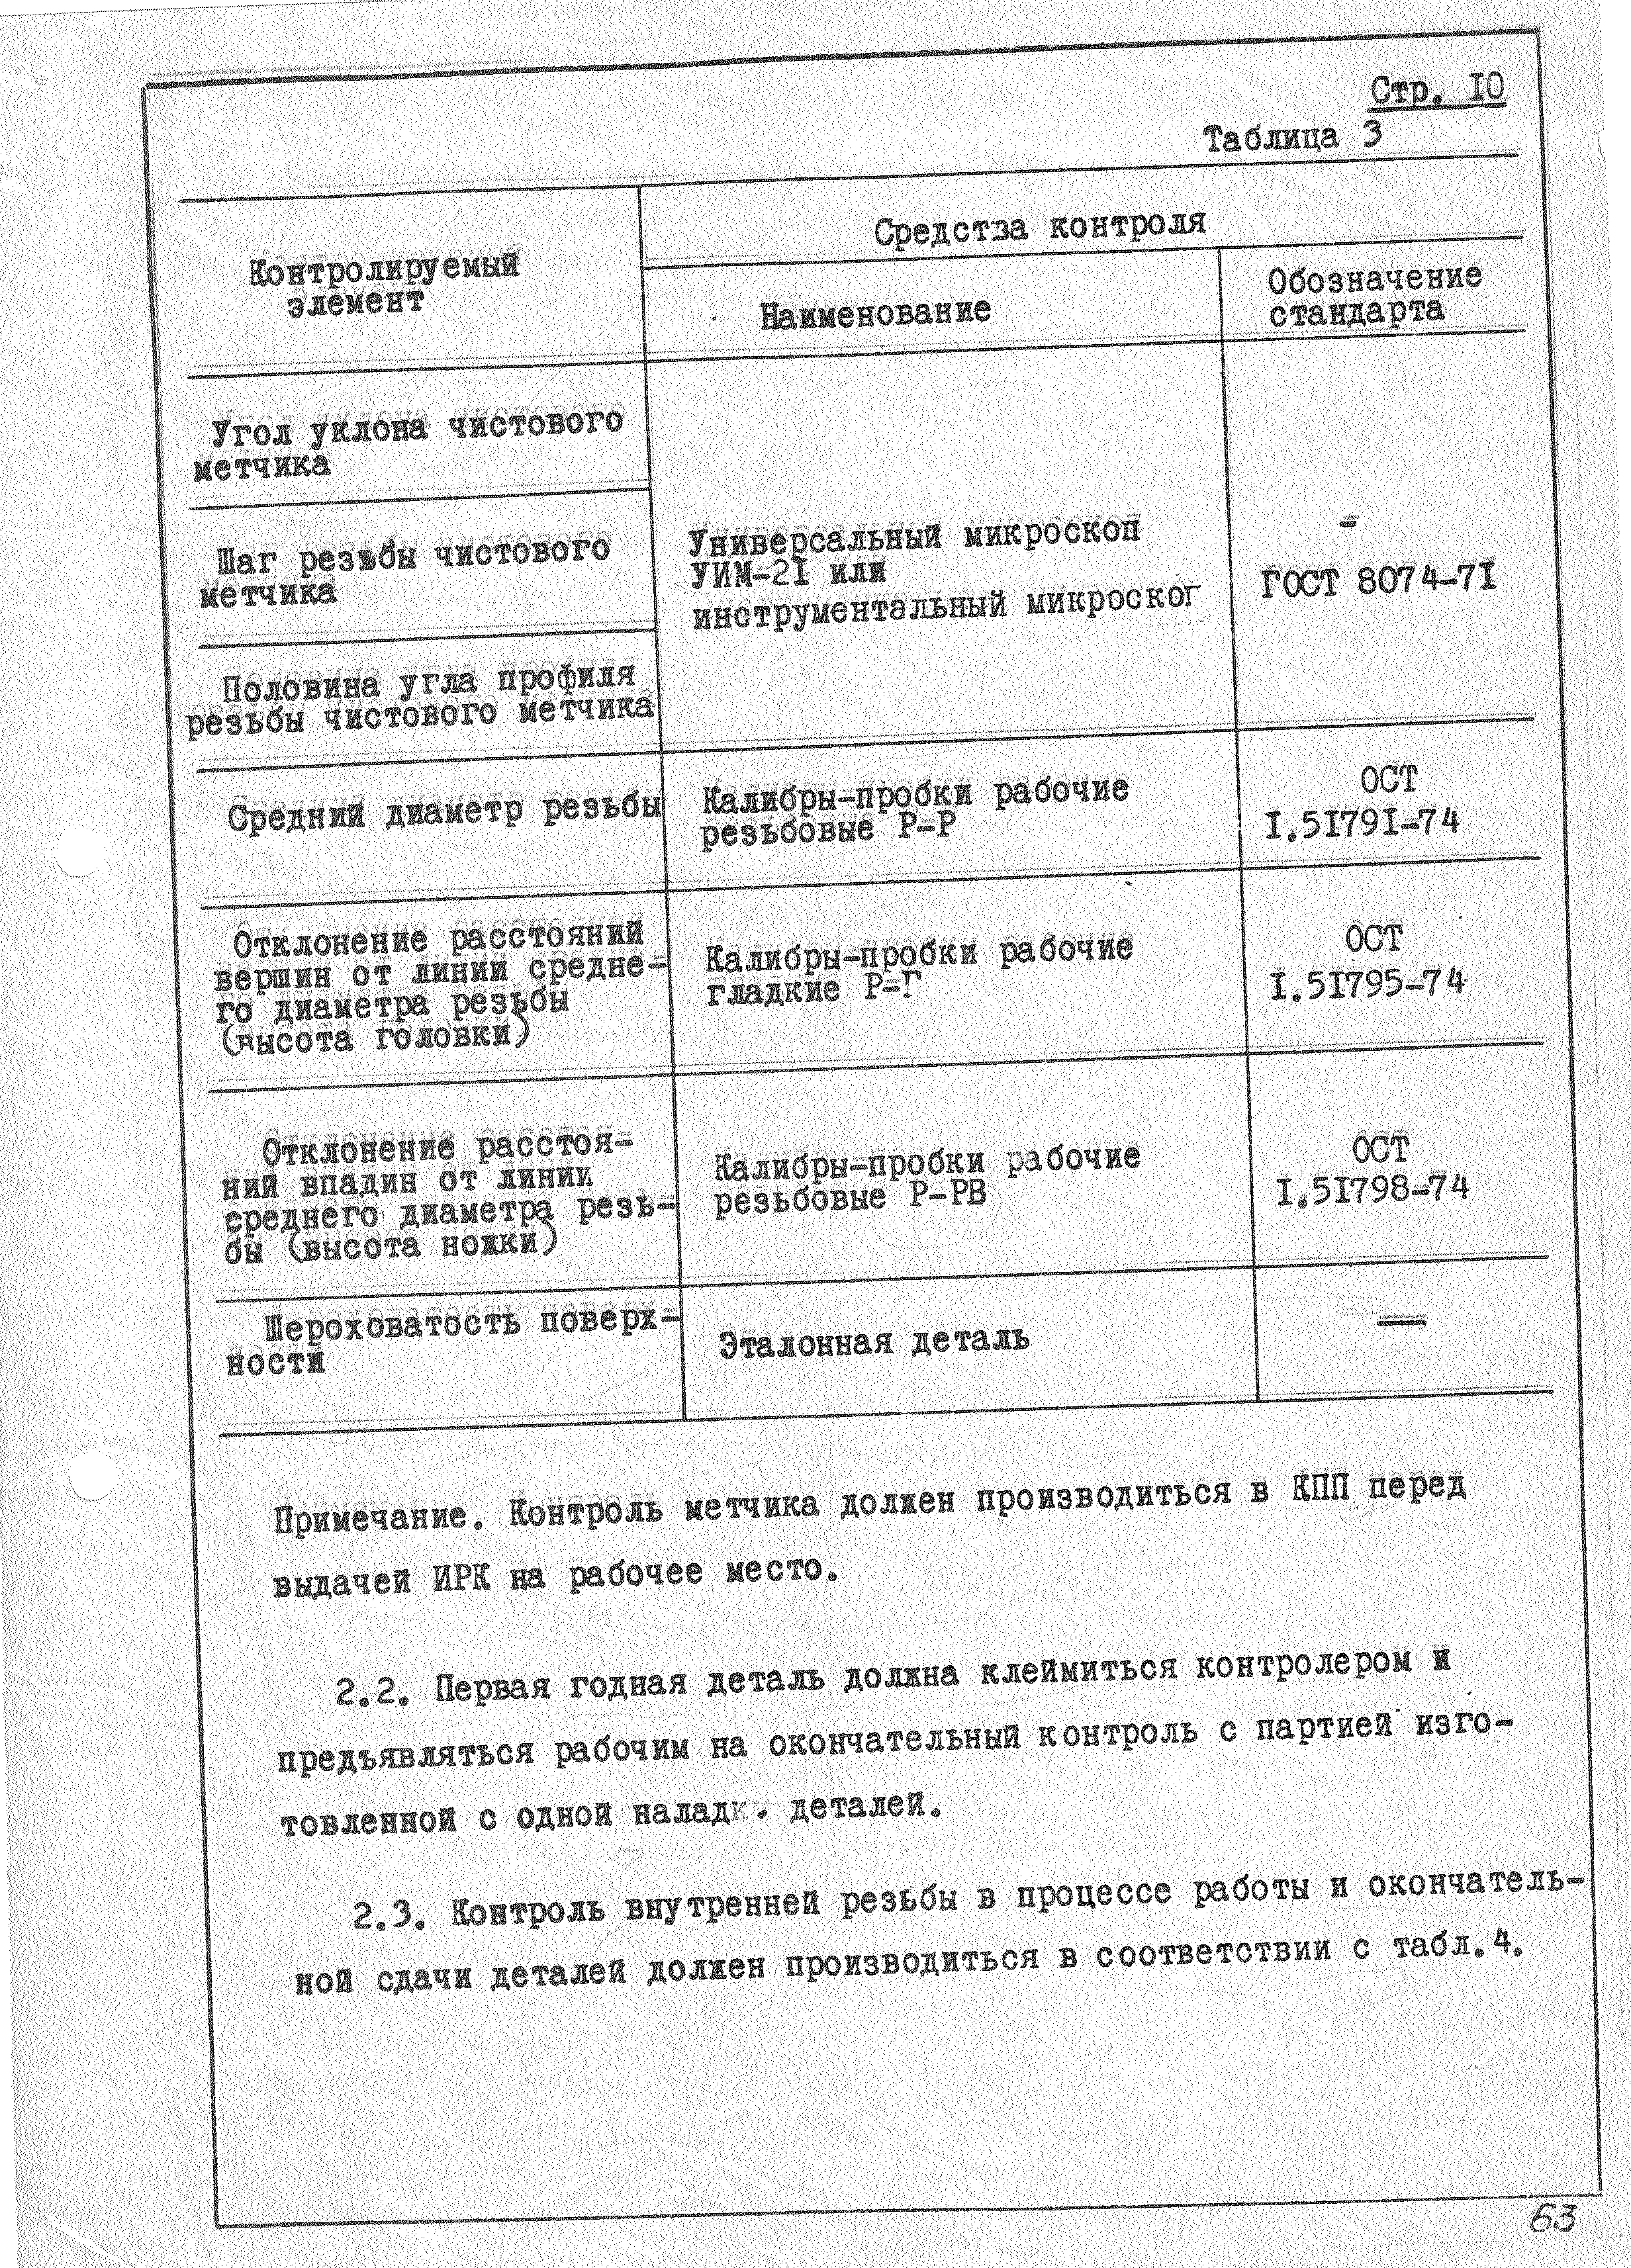 Стр. 10
Таблица 3
Контролируемый
элемент
Средства контроля
Наименование
Обозначение
стандарта
Угол уклона чистового
метчика
Шаг резьбы чистового
метчика
Половина угла профиля
резьбы чистового метчика
Универсальный микроскоп
УИМ-21 или
инструментальный микроског
-
ГОСТ 8074-71
Средний диаметр резьбы
Калибры-пробки рабочие
резьбовые Р-Р
ОСТ
1.51791-74
Отклонение расстояний
вершин от линии средне-
го диаметра резьбы
(высота головки)
Калибры-пробки рабочие
гладкие Р-Г
ОСТ
1.51795-74
Отклонение расстоя-
ний впадин от линии
среднего диаметра резь-
бы (высота ножки)
Калибры-пробки рабочие
резьбовые Р-РВ
ОСТ
1.51798-74
Шероховатость поверх-
ности
Эталонная деталь
—
Примечание. Контроль метчика должен производиться в КПП перед
выдачей ИРК на рабочее место.
2.2. Первая годная деталь должна клеймиться контролером и
предъявляться рабочим на окончательный контроль с партией изго-
товленной с одной наладки. деталей.
2.3. Контроль внутренней резьбы в процессе работы и окончатель-
ной сдачи деталей должен производиться в соответствии с табл.4.
63